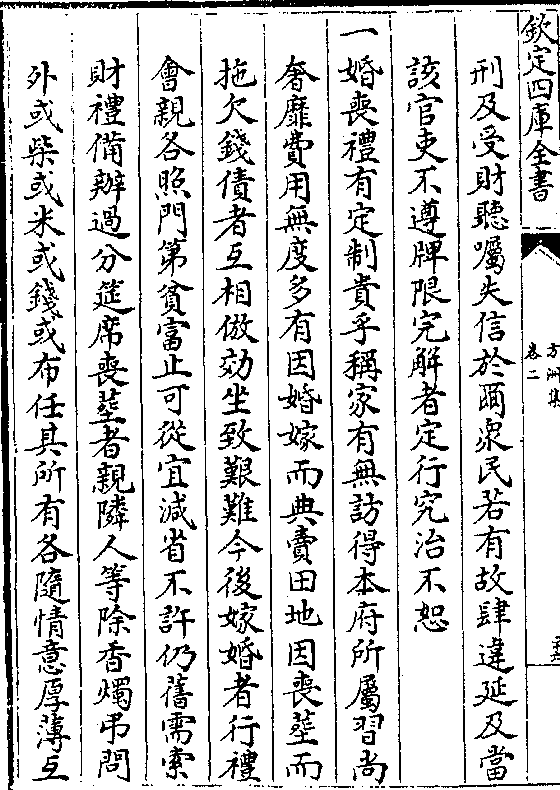 欽定四庫全書
方洲集
卷二
刑及受財聽囑失信於爾衆民若有故肆違延及當
該官吏不遵牌限完解者定行究治不恕
一婚喪禮有定制貴乎稱家有無訪得本府所屬習尚
奢靡費用無度多有因婚嫁而典賣田地因喪塟而
拖欠錢債者互相倣効坐致艱難今後嫁婚者行禮
會親各照門第貧富止可從宜減省不許仍舊需索
財禮備辦過分筵席喪塟者親隣人等除香燭弔問
外或柴或米或錢或布任其所有各隨情意厚薄互